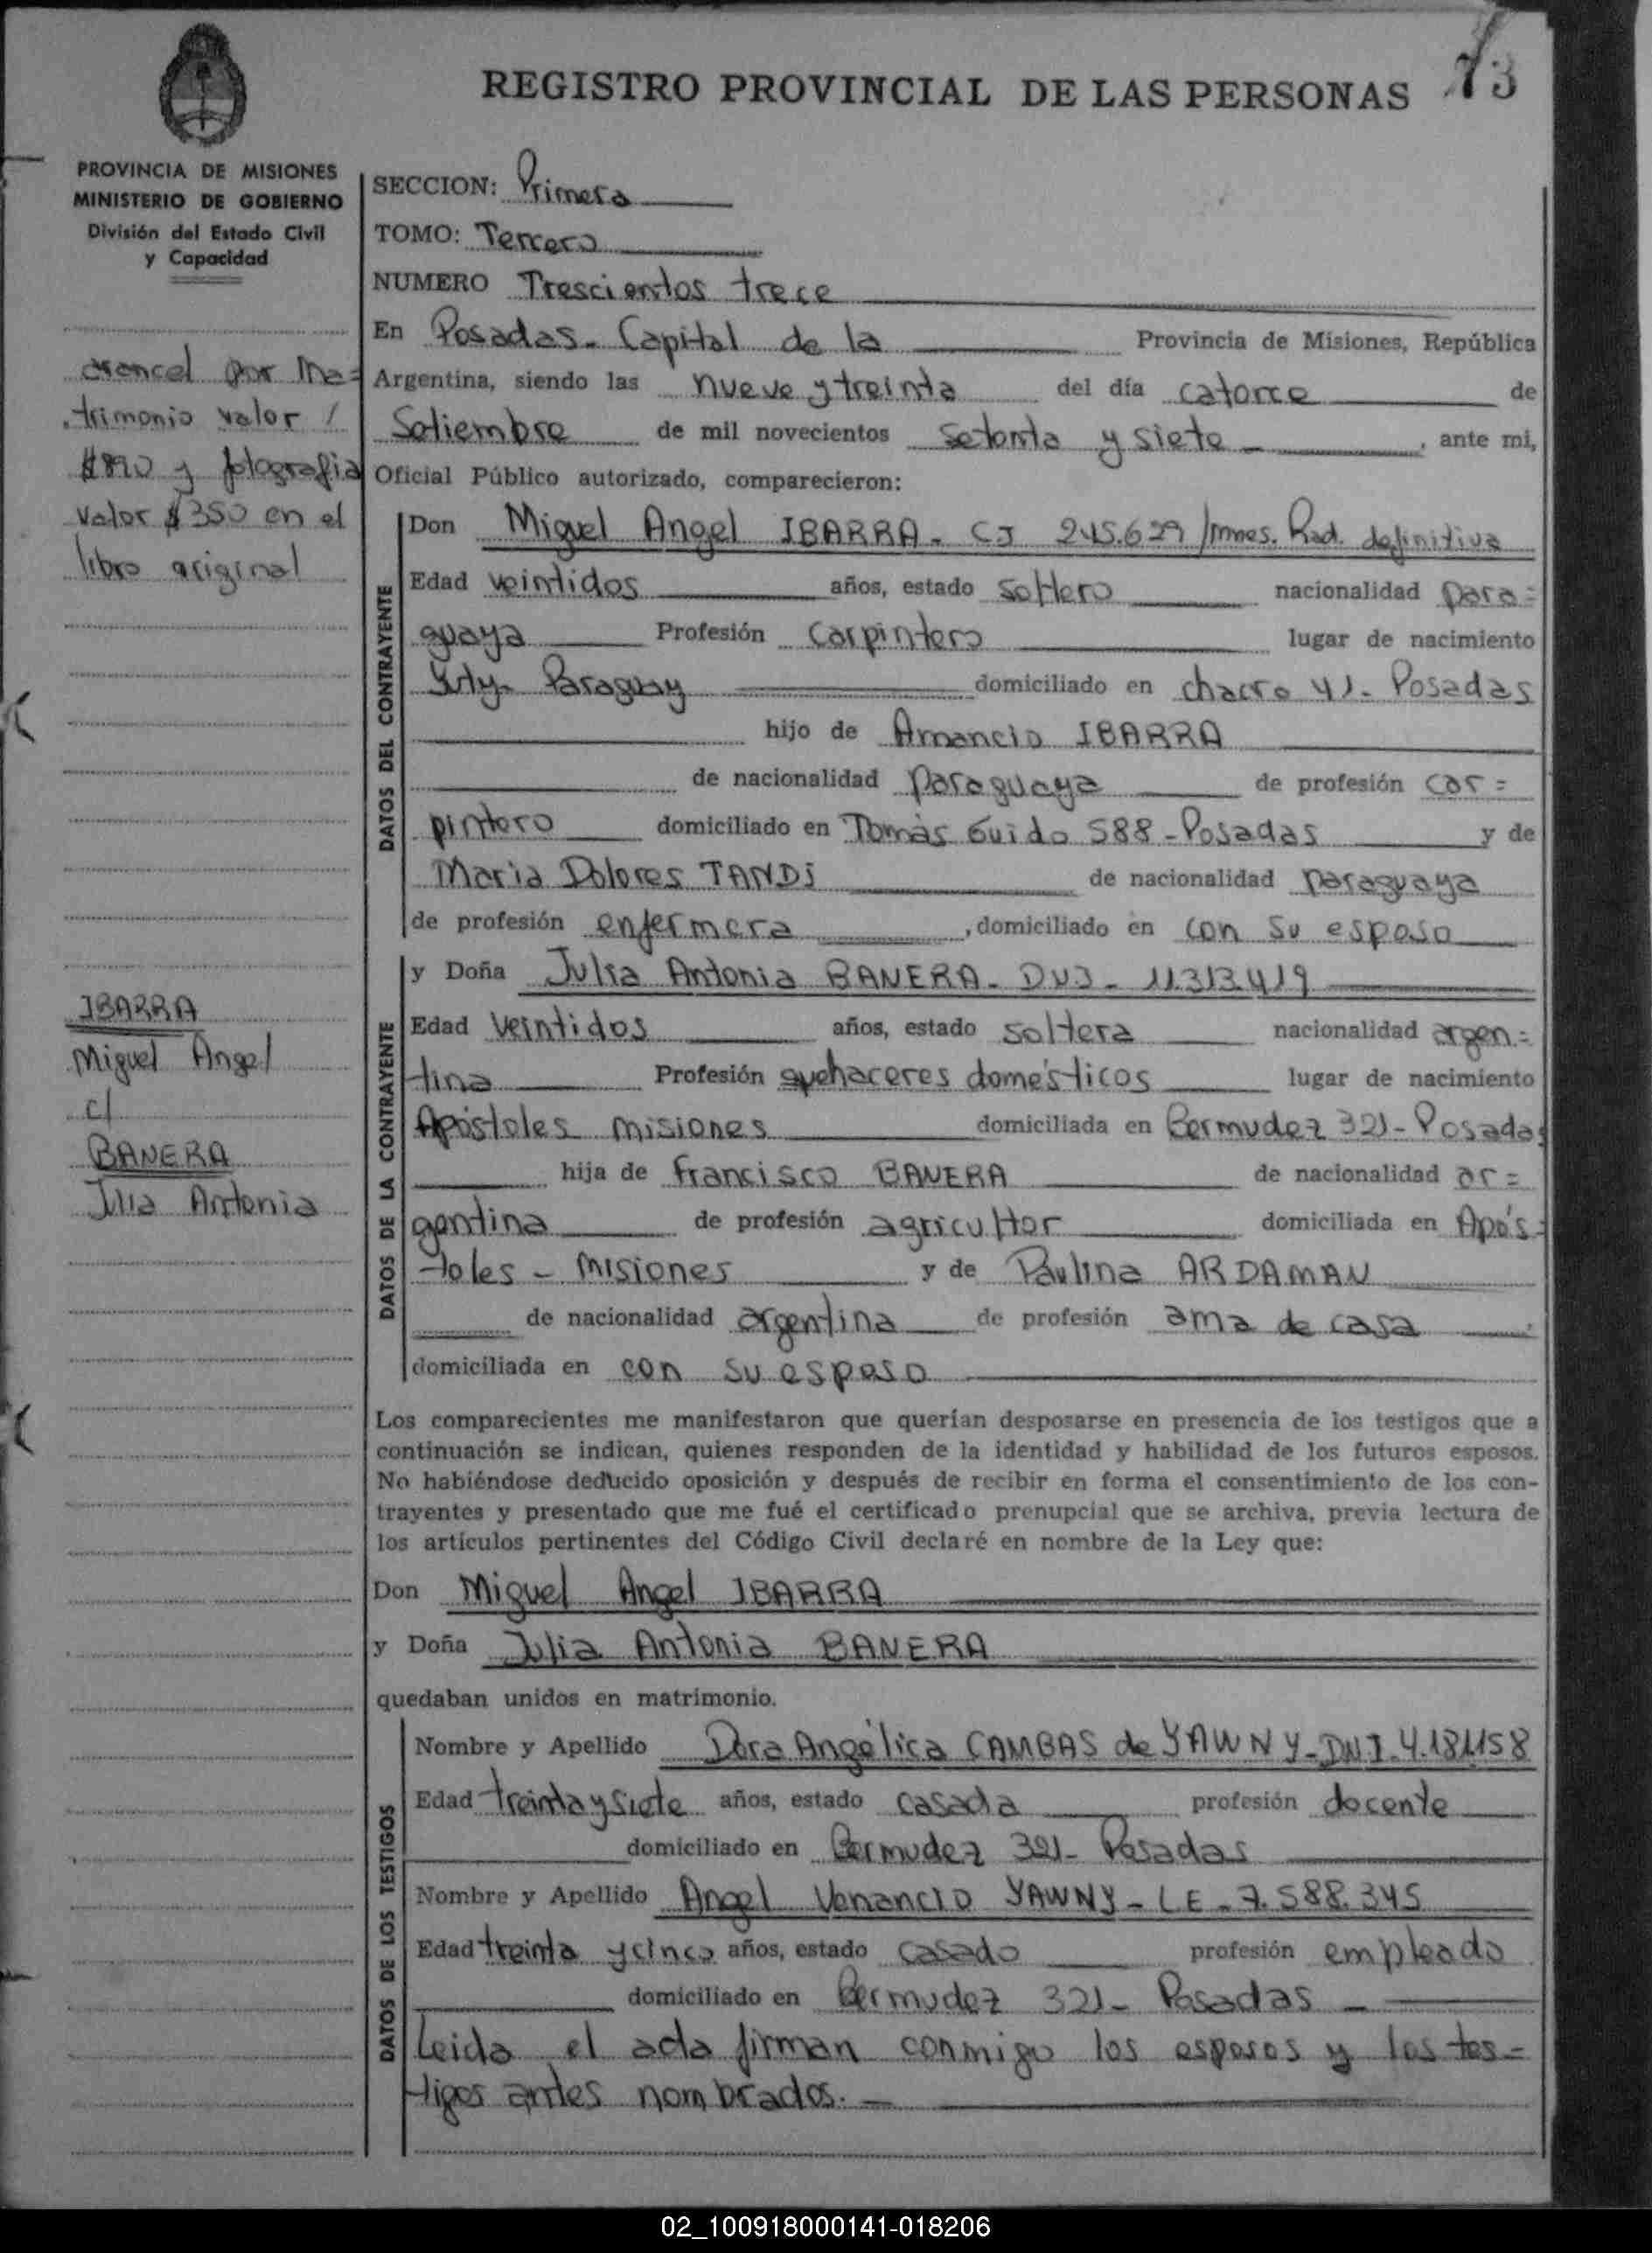 REGISTRO PROVINCIAL DE LAS PERSONAS
73
PROVINCIA DE MISIONES
MINISTERIO DE GOBIERNO
División del Estado Civil
y Capacidad
arancel por ma=
trimonio valor
y fotografia
valor $350 en el
libro original
IBARRA
Miguel Angel
c/
BANERA
Julia Antonia
SECCION: Primera
TOMO: Tercero
NUMERO Trescientos trece
En Posadas - Capital de la Provincia de Misiones, República
Argentina, siendo las nueve y treinta del día catorce de
Setiembre de mil novecientos setenta y siete, ante mi,
Oficial Público autorizado, comparecieron:
DATOS DEL CONTRAYENTE
Don Miguel Angel IBARRA - CI 245.629/mnes. Rad. definitiva
Edad veintidos años, estado soltero nacionalidad para=
guaya Profesión Carpintero lugar de nacimiento
Yuty - Paraguay domiciliado en chacra 41 - Posadas
hijo de Amancio IBARRA
de nacionalidad paraguaya de profesión car=
pintero domiciliado en Tomás Guido 588 - Posadas y de
Maria Dolores TANDI de nacionalidad paraguaya
de profesión enfermera, domiciliado en con su esposo
DATOS DE LA CONTRAYENTE
y Doña Julia Antonia BANERA - DNI - 11.313.419
Edad veintidos años, estado soltera nacionalidad argen=
tina Profesión quehaceres domésticos lugar de nacimiento
Apóstoles misiones domiciliada en Bermudez 321 - Posadas
hija de Francisco BANERA de nacionalidad ar=
gentina de profesión agricultor domiciliada en Após=
toles - misiones y de Paulina ARDAMAN
de nacionalidad argentina de profesión ama de casa
domiciliada en con su esposo
Los comparecientes me manifestaron que querían desposarse en presencia de los testigos que a
continuación se indican, quienes responden de la identidad y habilidad de los futuros esposos.
No habiéndose deducido oposición y después de recibir en forma el consentimiento de los con-
trayentes y presentado que me fué el certificado prenupcial que se archiva, previa lectura de
los artículos pertinentes del Código Civil declaré en nombre de la Ley que:
Don Miguel Angel IBARRA
y Doña Julia Antonia BANERA
quedaban unidos en matrimonio.
DATOS DE LOS TESTIGOS
Nombre y Apellido Dora Angélica CAMBAS de YAWNY - DNI - 4.181.158
Edad treinta y siete años, estado casada profesión docente
domiciliado en Bermudez 321 - Posadas
Nombre y Apellido Angel Venancio YAWNY - LE - 7.588.345
Edad treinta y cinco años, estado casado profesión empleado
domiciliado en Bermudez 321 - Posadas -
Leida el acta firman conmigo los esposos y los tes=
tigos antes nombrados. -
02_100918000141-018206